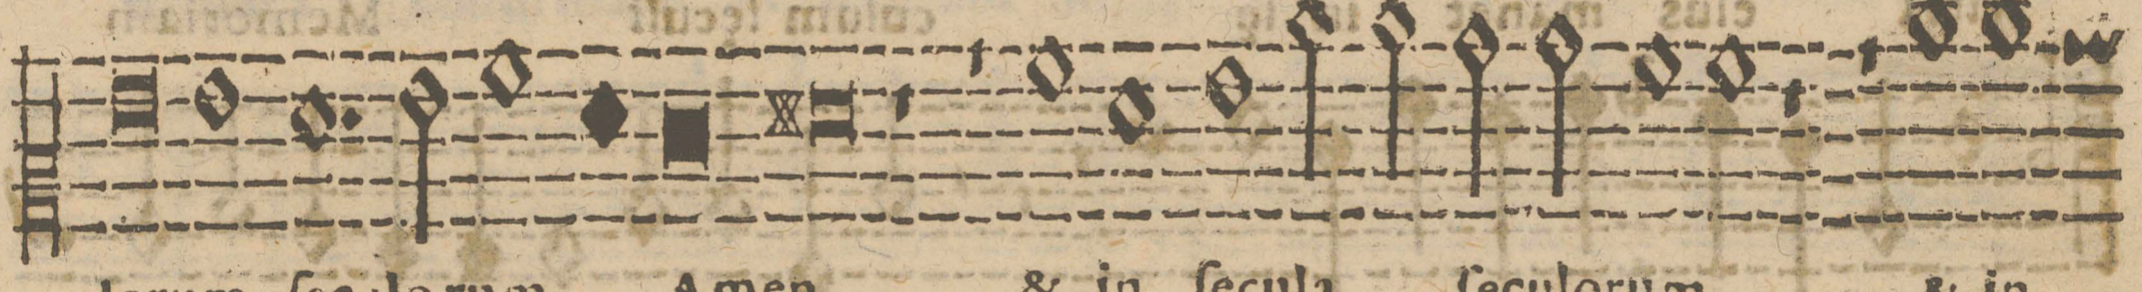 lorum seculorum Amen & in secula seculorum & in